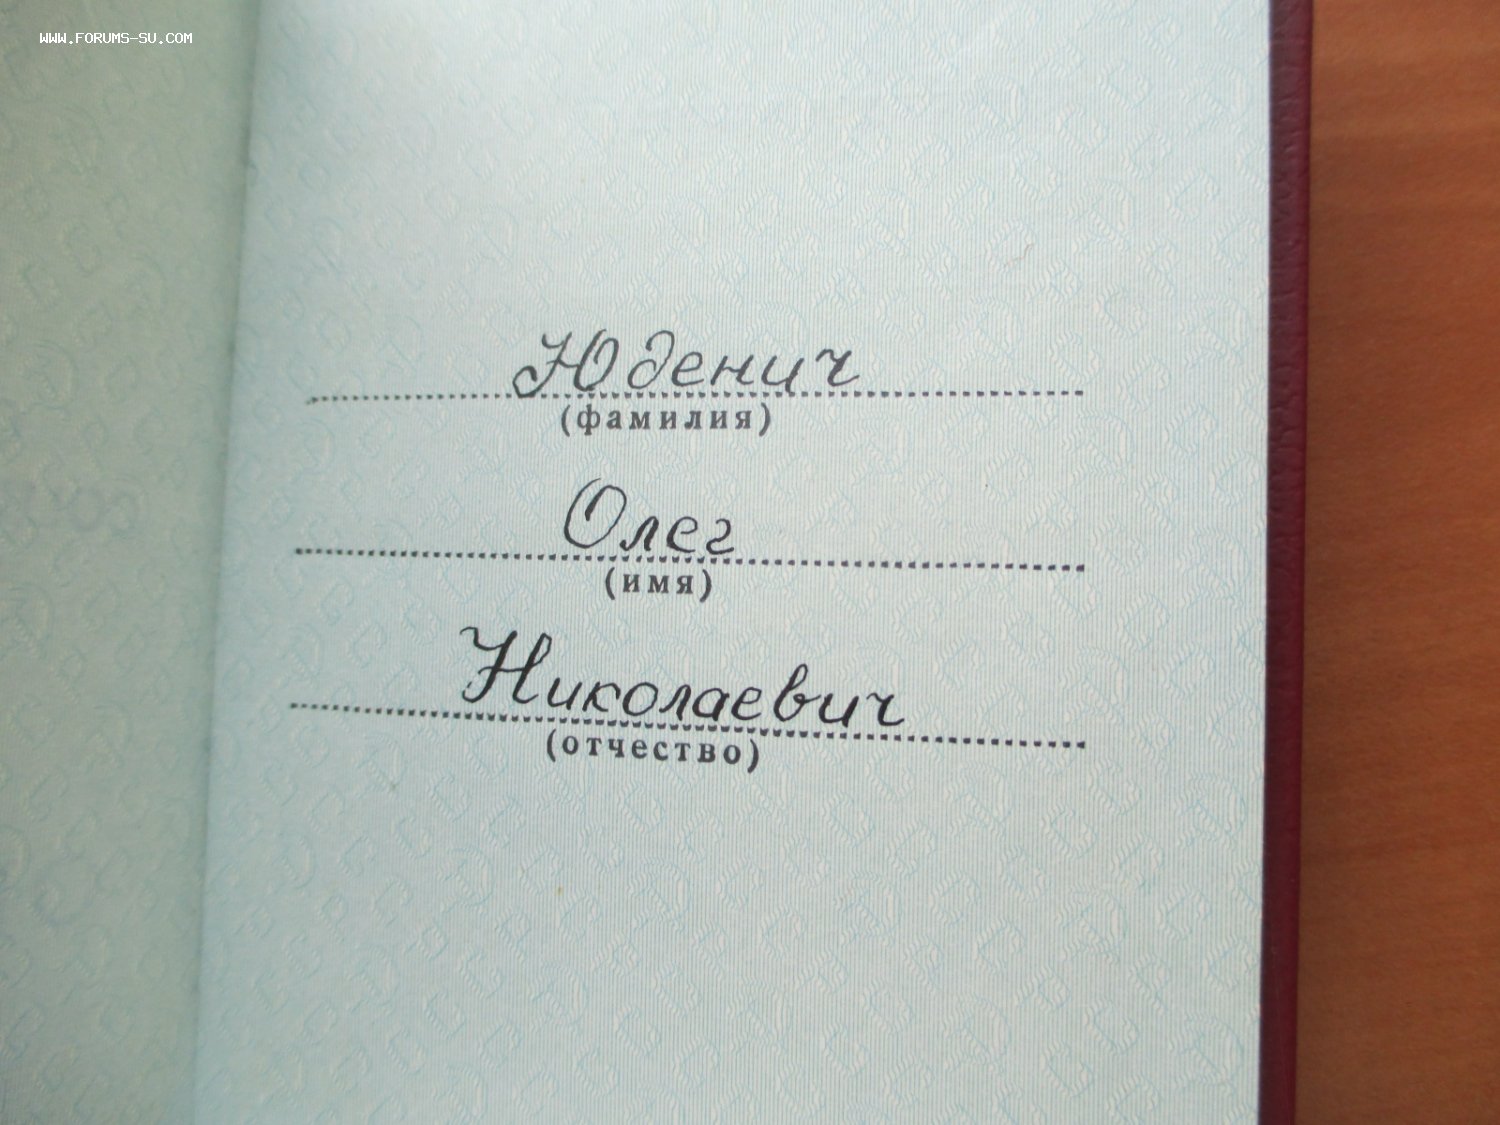 WWW.FORUMS-SU.COM
Юденич
(фамилия)
Олег
(имя)
Николаевич
(отчество)